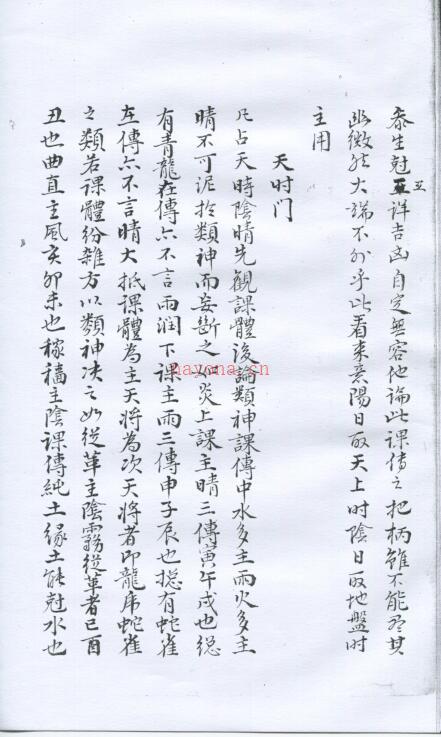 泰生尅互詳吉凶自定無容他論此課傳之把柄雖不能尽其
幽微然大端不外乎此看来意陽日取天上时陰日取地盤时
主用
天时门
凡占天時陰晴先観課體後論類神課傳中水多主雨火多主
晴不可泥於類神而妄断之如炎上課主晴三傳寅午戌也縂
有青龍在傳亦不言雨润下課主雨三傳申子辰也縂有蛇雀
在傳亦不言晴大抵課體為主天将為次天将者即龍虎蛇雀
之類若課體紛雑方以類神决之如從革主陰霧從革者巳酉
丑也曲直主風亥卯未也稼穡主陰課傳純土缘土能尅水也
hayona.cn